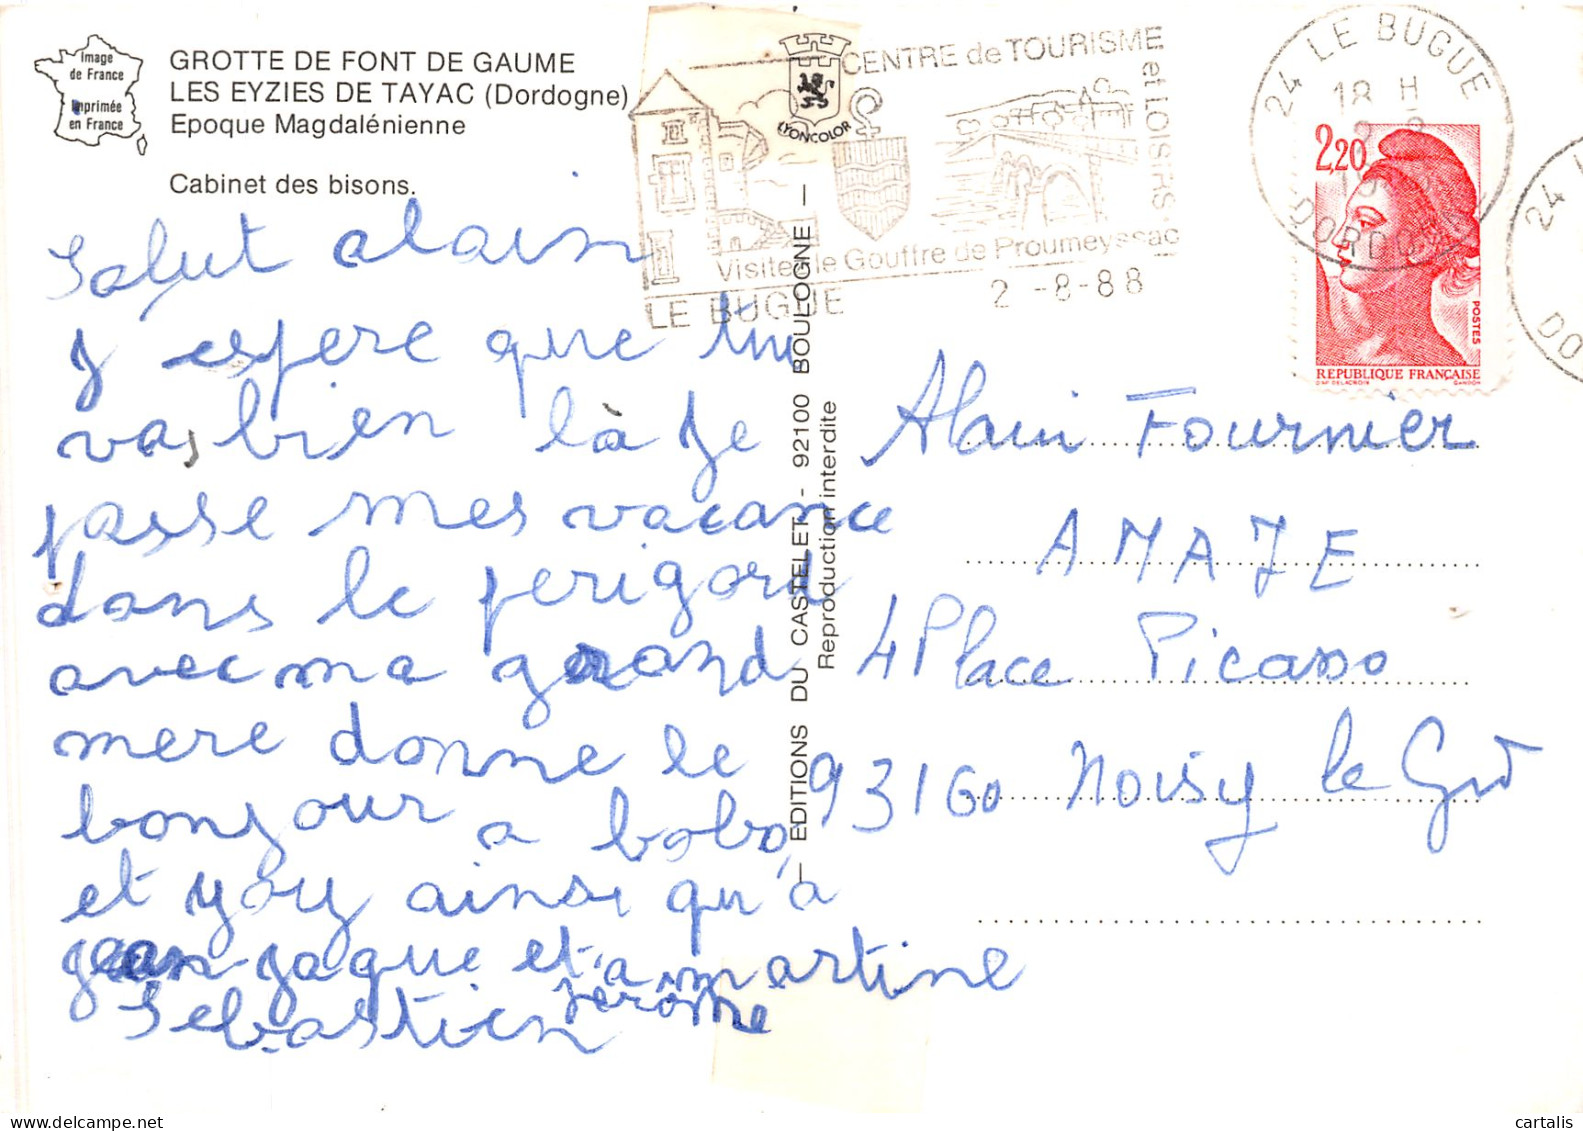 Image
de France
Imprimée
en France
GROTTE DE FONT DE GAUME
LES EYZIES DE TAYAC (Dordogne)
Epoque Magdalénienne
Cabinet des bisons.
LYONCOLOR
CENTRE de TOURISME
et LOISIRS
Visitez le Gouffre de Proumeyssac
LE BUGUE
2 -8-88
24 LE BUGUE
18 H
DORDOGNE
24
DO
2,20
POSTES
REPUBLIQUE FRANÇAISE
D'AP DELACROIX GANDON
Salut alain
j espere que tu
vas bien là je
passe mes vacance
dans le perigord
avec ma grand
mere donne le
bonjour a bobo,
et yoy ainsi qu'a
jean-jaque et a martine
Sebastien jerôme
— EDITIONS DU CASTELET - 92100 BOULOGNE —
Reproduction interdite
Alain Fournier
AMAJE
4 Place Picasso
93160 Noisy le Grd
cartalis
delcampe.net